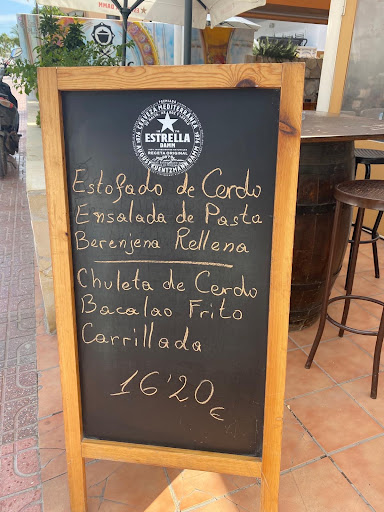 CERVEZA MEDITERRÁNEA
ESTRELLA
DAMM
RECETA ORIGINAL
Estofado de Cerdo
Ensalada de Pasta
Berenjena Rellena
Chuleta de Cerdo
Bacalao Frito
Carrillada
16'20 €